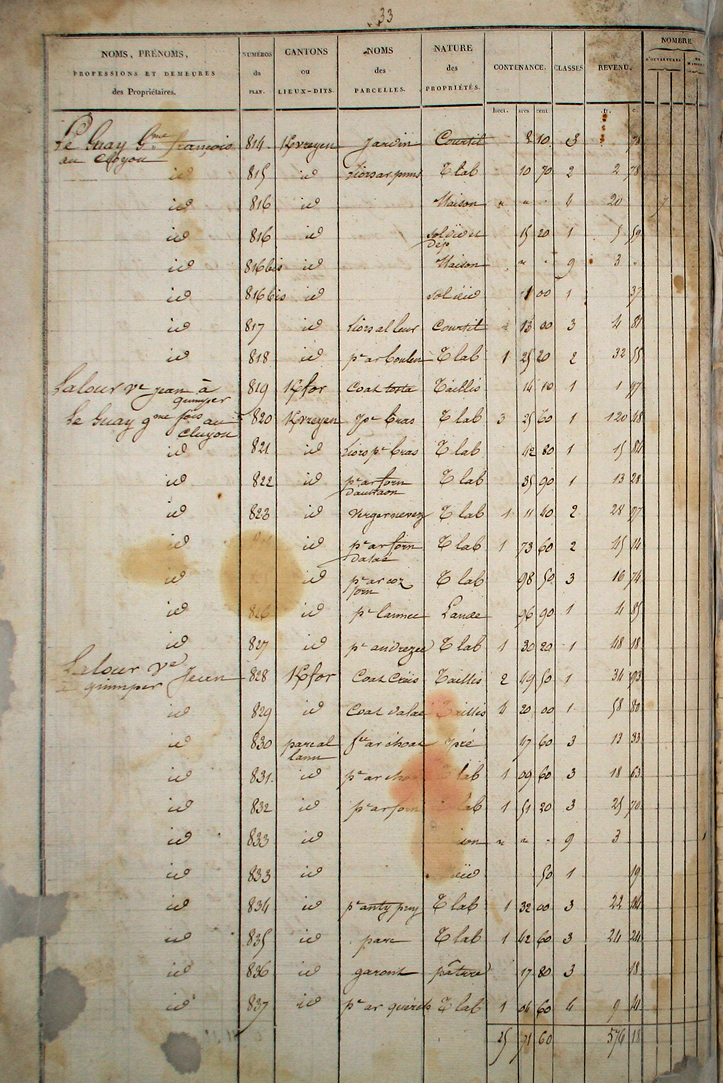 33
NOMS, PRÉNOMS, PROFESSIONS ET DEMEURES des Propriétaires. NUMÉROS du PLAN. CANTONS ou LIEUX-DITS. NOMS des PARCELLES. NATURE des PROPRIÉTÉS. CONTENANCE. CLASSES REVENU. NOMBRE
hect. ares cent. fr. c.
Le Guay Gme françois 814 Kvreyen Jardin Courtil 8 10 3 78
au Cloyou
id 815 id Liorsarprins T lab 10 70 2 2 78
id 816 id Maison " " 4 20
id 816 id Sol id et 15 20 1 5 59
dep
id 816 bis id Maison " - 9 3 -
id 816 bis id Sol id 1 00 1 37
id 817 id Liors al leur Courtil 13 00 3 4 81
id 818 id pc ar boulen T lab 1 25 20 2 32 55
Lalour ve jean à 819 Kfor Coat Taillis 14 10 1 1 97
quimper
Le Guay gme fois au 820 Kvreyen pc bras T lab 3 25 60 1 120 48
Cluyou
id 821 id Liors pc bras T lab 42 80 1 15 84
id 822 id pc ar forn T lab 35 90 1 13 28
id 823 id Vergernevez T lab 1 11 40 2 28 97
id id pc ar forn T lab 1 73 60 2 45 14
dalae
id id pc ar coz T lab 98 50 3 16 74
forn
id 826 id pc lannec Lande 96 90 1 4 85
id 827 id pc andrezec T lab 1 30 20 1 48 18
Lalour ve Jean 828 Kfor Coat Creis Taillis 2 49 50 1 34 93
à quimper
id 829 id Coat dalae Taillis 4 20 00 1 58 80
id 830 parc al fc ar choat pré 47 60 3 13 33
lann
id 831 id pc ar lab 1 09 60 3 18 63
id 832 id pc ar forn lab 1 51 20 3 25 70
id 833 id " " - 9 3
id 833 id 50 1 19
id 834 id pc anty pry T lab 1 32 00 3 22 44
id 835 id parc T lab 1 42 60 3 24 24
id 836 id garont pâture 17 80 3 18
id 837 id pc ar T lab 1 06 60 4 9
25 71 60 576 18